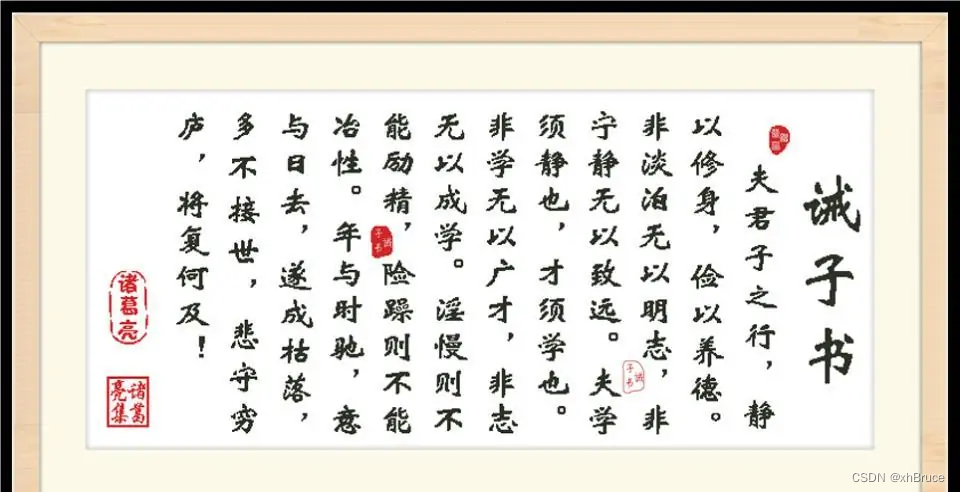 诫子书
夫君子之行，静
以修身，俭以养德。
非淡泊无以明志，非
宁静无以致远。夫学
须静也，才须学也。
非学无以广才，非志
无以成学。淫慢则不
能励精，险躁则不能
冶性。年与时驰，意
与日去，遂成枯落，
多不接世，悲守穷
庐，将复何及！
诫子书
诫子书
诸葛亮
诸葛亮集
CSDN @xhBruce